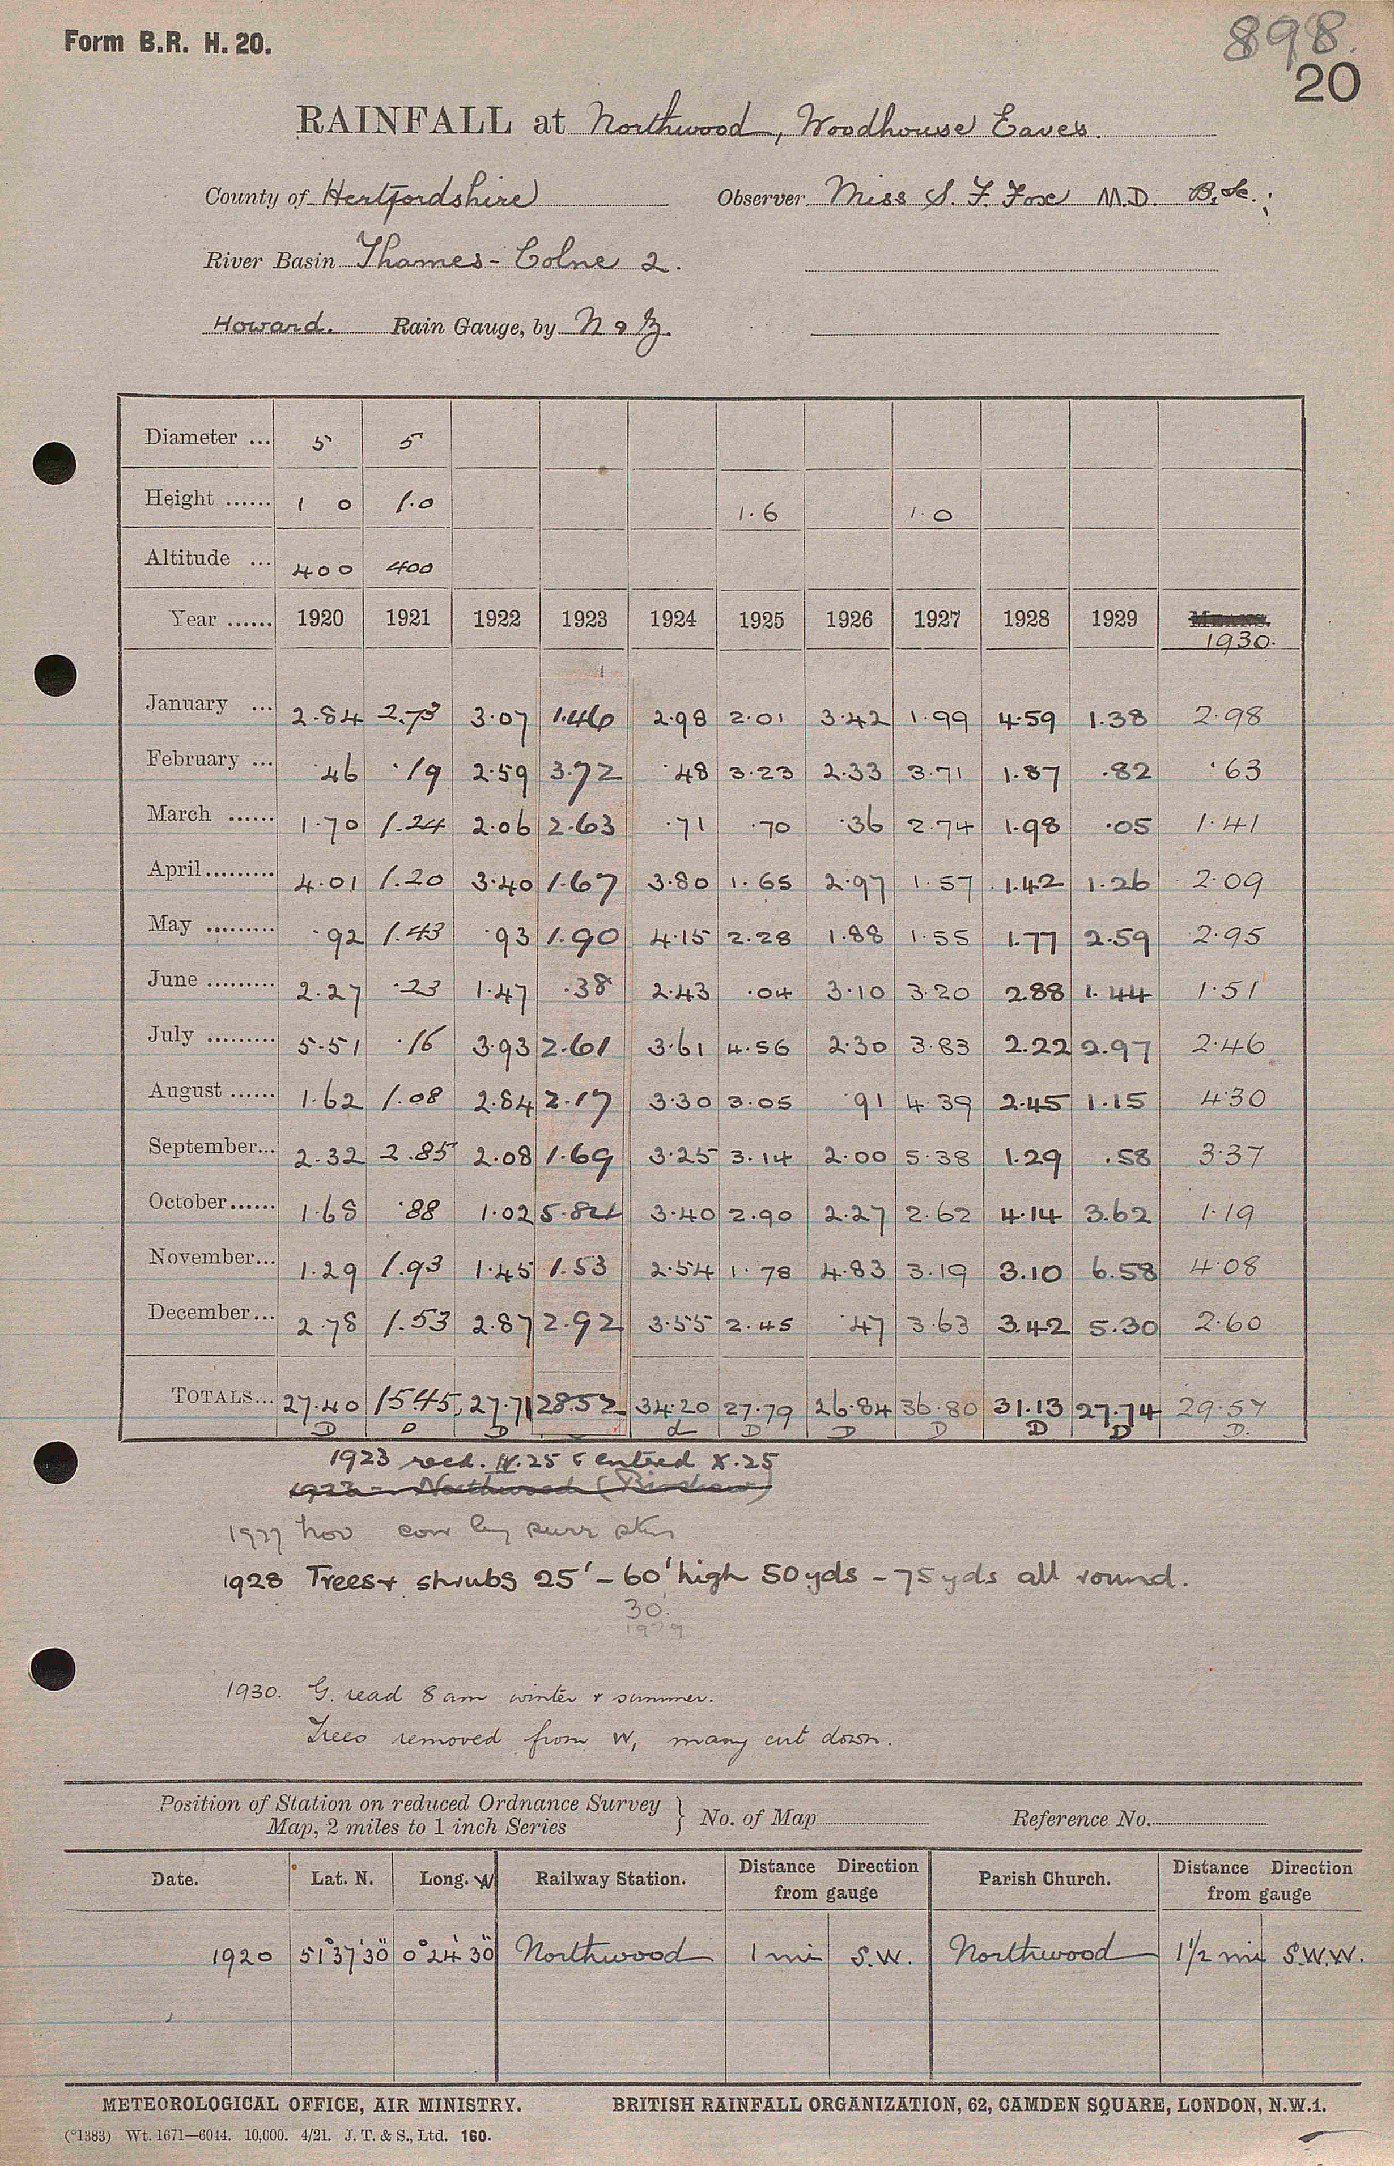 Form B.R. H. 20.
898.
20
RAINFALL at Northwood, Woodhouse Eaves.
County of Hertfordshire Observer Miss S. F. Fox M.D. B.Sc.;
River Basin Thames - Colne 2.
Howard. Rain Gauge, by N & Z.
Diameter ... 5 5
Height ...... 1 0 1.0 1.6 1.0
Altitude ... 400 400
Year ...... 1920 1921 1922 1923 1924 1925 1926 1927 1928 1929 1930.
January ... 2.84 2.73 3.07 1.46 2.98 2.01 3.42 1.99 4.59 1.38 2.98
February ... .46 .19 2.59 3.72 .48 3.23 2.33 3.71 1.87 .82 .63
March ...... 1.70 1.24 2.06 2.63 .71 .70 .36 2.74 1.98 .05 1.41
April ......... 4.01 1.20 3.40 1.67 3.80 1.65 2.97 1.57 1.42 1.26 2.09
May ......... .92 1.43 .93 1.90 4.15 2.28 1.88 1.55 1.77 2.59 2.95
June ......... 2.27 .23 1.47 .38 2.43 .04 3.10 3.20 2.88 1.44 1.51
July ......... 5.51 .16 3.93 2.61 3.61 4.56 2.30 3.83 2.22 2.97 2.46
August ...... 1.62 1.08 2.84 2.17 3.30 3.05 .91 4.39 2.45 1.15 4.30
September... 2.32 2.85 2.08 1.69 3.25 3.14 2.00 5.38 1.29 .58 3.37
October...... 1.68 .88 1.02 5.84 3.40 2.90 2.27 2.62 4.14 3.62 1.19
November... 1.29 1.93 1.45 1.53 2.54 1.78 4.83 3.19 3.10 6.58 4.08
December... 2.78 1.53 2.87 2.92 3.55 2.45 .47 3.63 3.42 5.30 2.60
TOTALS... 27.40 15.45 27.71 28.52 34.20 27.79 26.84 36.80 31.13 27.74 29.57
D D D d D D D D D D.
1923 recd. IV.25 & entred X.25
1923 - Northwood
1927 nov
1928 Trees & shrubs 25' - 60' high 50 yds - 75 yds all round.
30.
1929
1930. G. read 8 am winter & summer.
Trees removed from W, many cut down.
Position of Station on reduced Ordnance Survey Map, 2 miles to 1 inch Series } No. of Map Reference No.
Date. Lat. N. Long. W Railway Station. Distance Direction from gauge Parish Church. Distance Direction from gauge
1920 51°37'30" 0°24'30" Northwood 1 mi S.W. Northwood 1½ mi S.W.W.
METEOROLOGICAL OFFICE, AIR MINISTRY. BRITISH RAINFALL ORGANIZATION, 62, CAMDEN SQUARE, LONDON, N.W.1.
(*1383) Wt. 1671—6044. 10,000. 4/21. J. T. & S., Ltd. 160.